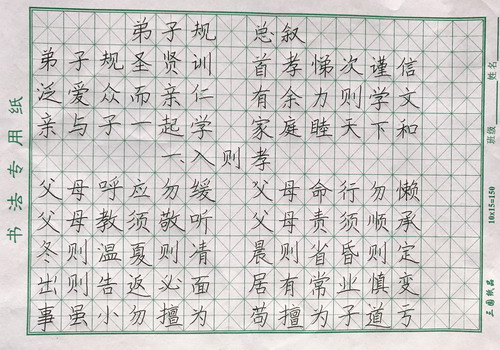 弟子规 总叙
弟子规圣贤训 首孝悌次谨信
泛爱众而亲仁 有余力则学文
亲与子一起学 家庭睦天下和
一、入则孝
父母呼应勿缓 父母命行勿懒
父母教须敬听 父母责须顺承
冬则温夏则凊 晨则省昏则定
出则告返必面 居有常业慎变
事虽小勿擅为 苟擅为子道亏
书法专用纸
姓名
班级
10x15=150